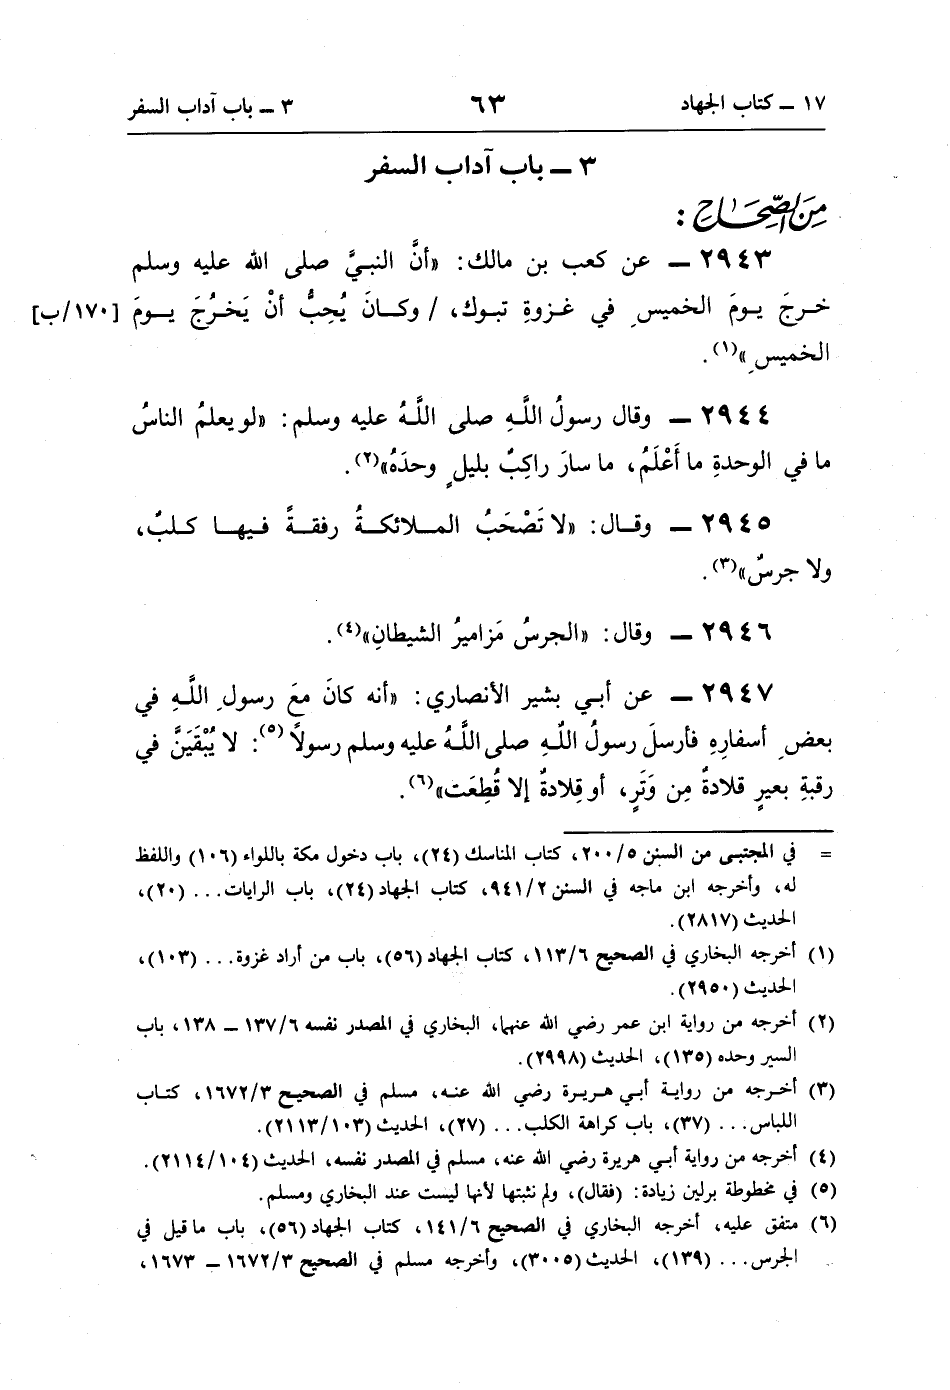 ١٧ ـ كتاب الجهاد ٦٣ ٣ ـ باب آداب السفر
٣ ـ باب آداب السفر
مِنَ الصِّحَاحِ :
٢٩٤٣ ـ عن كعب بن مالك: «أنَّ النبيَّ صلى الله عليه وسلم
خرجَ يومَ الخميسِ في غزوةِ تبوك، / وكانَ يُحِبُّ أنْ يَخرُجَ يومَ [١٧٠/ب]
الخميسِ»(١).
٢٩٤٤ ـ وقال رسولُ اللَّهِ صلى اللَّهُ عليه وسلم: «لو يعلمُ الناسُ
ما في الوحدةِ ما أَعْلَمُ، ما سارَ راكِبٌ بليلٍ وحدَهُ»(٢).
٢٩٤٥ ـ وقال: «لا تَصْحَبُ الملائكةُ رفقةً فيها كلبٌ،
ولا جرسٌ»(٣).
٢٩٤٦ ـ وقال: «الجرسُ مَزاميرُ الشيطانِ»(٤).
٢٩٤٧ ـ عن أبي بشير الأنصاري: «أنه كانَ معَ رسولِ اللَّهِ في
بعضِ أسفارِهِ فأرسلَ رسولُ اللَّهِ صلى اللَّهُ عليه وسلم رسولاً(٥): لا يُبْقَيَنَّ في
رقبةِ بعيرٍ قلادةٌ مِن وَتَرٍ، أو قِلادةٌ إلا قُطِعَت»(٦).
= في المجتبى من السنن ٢٠٠/٥، كتاب المناسك (٢٤)، باب دخول مكة باللواء (١٠٦) واللفظ
له، وأخرجه ابن ماجه في السنن ٩٤١/٢، كتاب الجهاد (٢٤)، باب الرايات... (٢٠)،
الحديث (٢٨١٧).
(١) أخرجه البخاري في الصحيح ١١٣/٦، كتاب الجهاد (٥٦)، باب من أراد غزوة... (١٠٣)،
الحديث (٢٩٥٠).
(٢) أخرجه من رواية ابن عمر رضي الله عنهما، البخاري في المصدر نفسه ١٣٧/٦ ـ ١٣٨، باب
السير وحده (١٣٥)، الحديث (٢٩٩٨).
(٣) أخرجه من رواية أبي هريرة رضي الله عنه، مسلم في الصحيح ١٦٧٢/٣، كتاب
اللباس... (٣٧)، باب كراهة الكلب... (٢٧)، الحديث (٢١١٣/١٠٣).
(٤) أخرجه من رواية أبي هريرة رضي الله عنه، مسلم في المصدر نفسه، الحديث (٢١١٤/١٠٤).
(٥) في مخطوطة برلين زيادة: (فقال)، ولم نثبتها لأنها ليست عند البخاري ومسلم.
(٦) متفق عليه، أخرجه البخاري في الصحيح ١٤١/٦، كتاب الجهاد (٥٦)، باب ما قيل في
الجرس... (١٣٩)، الحديث (٣٠٠٥)، وأخرجه مسلم في الصحيح ١٦٧٢/٣ ـ ١٦٧٣،